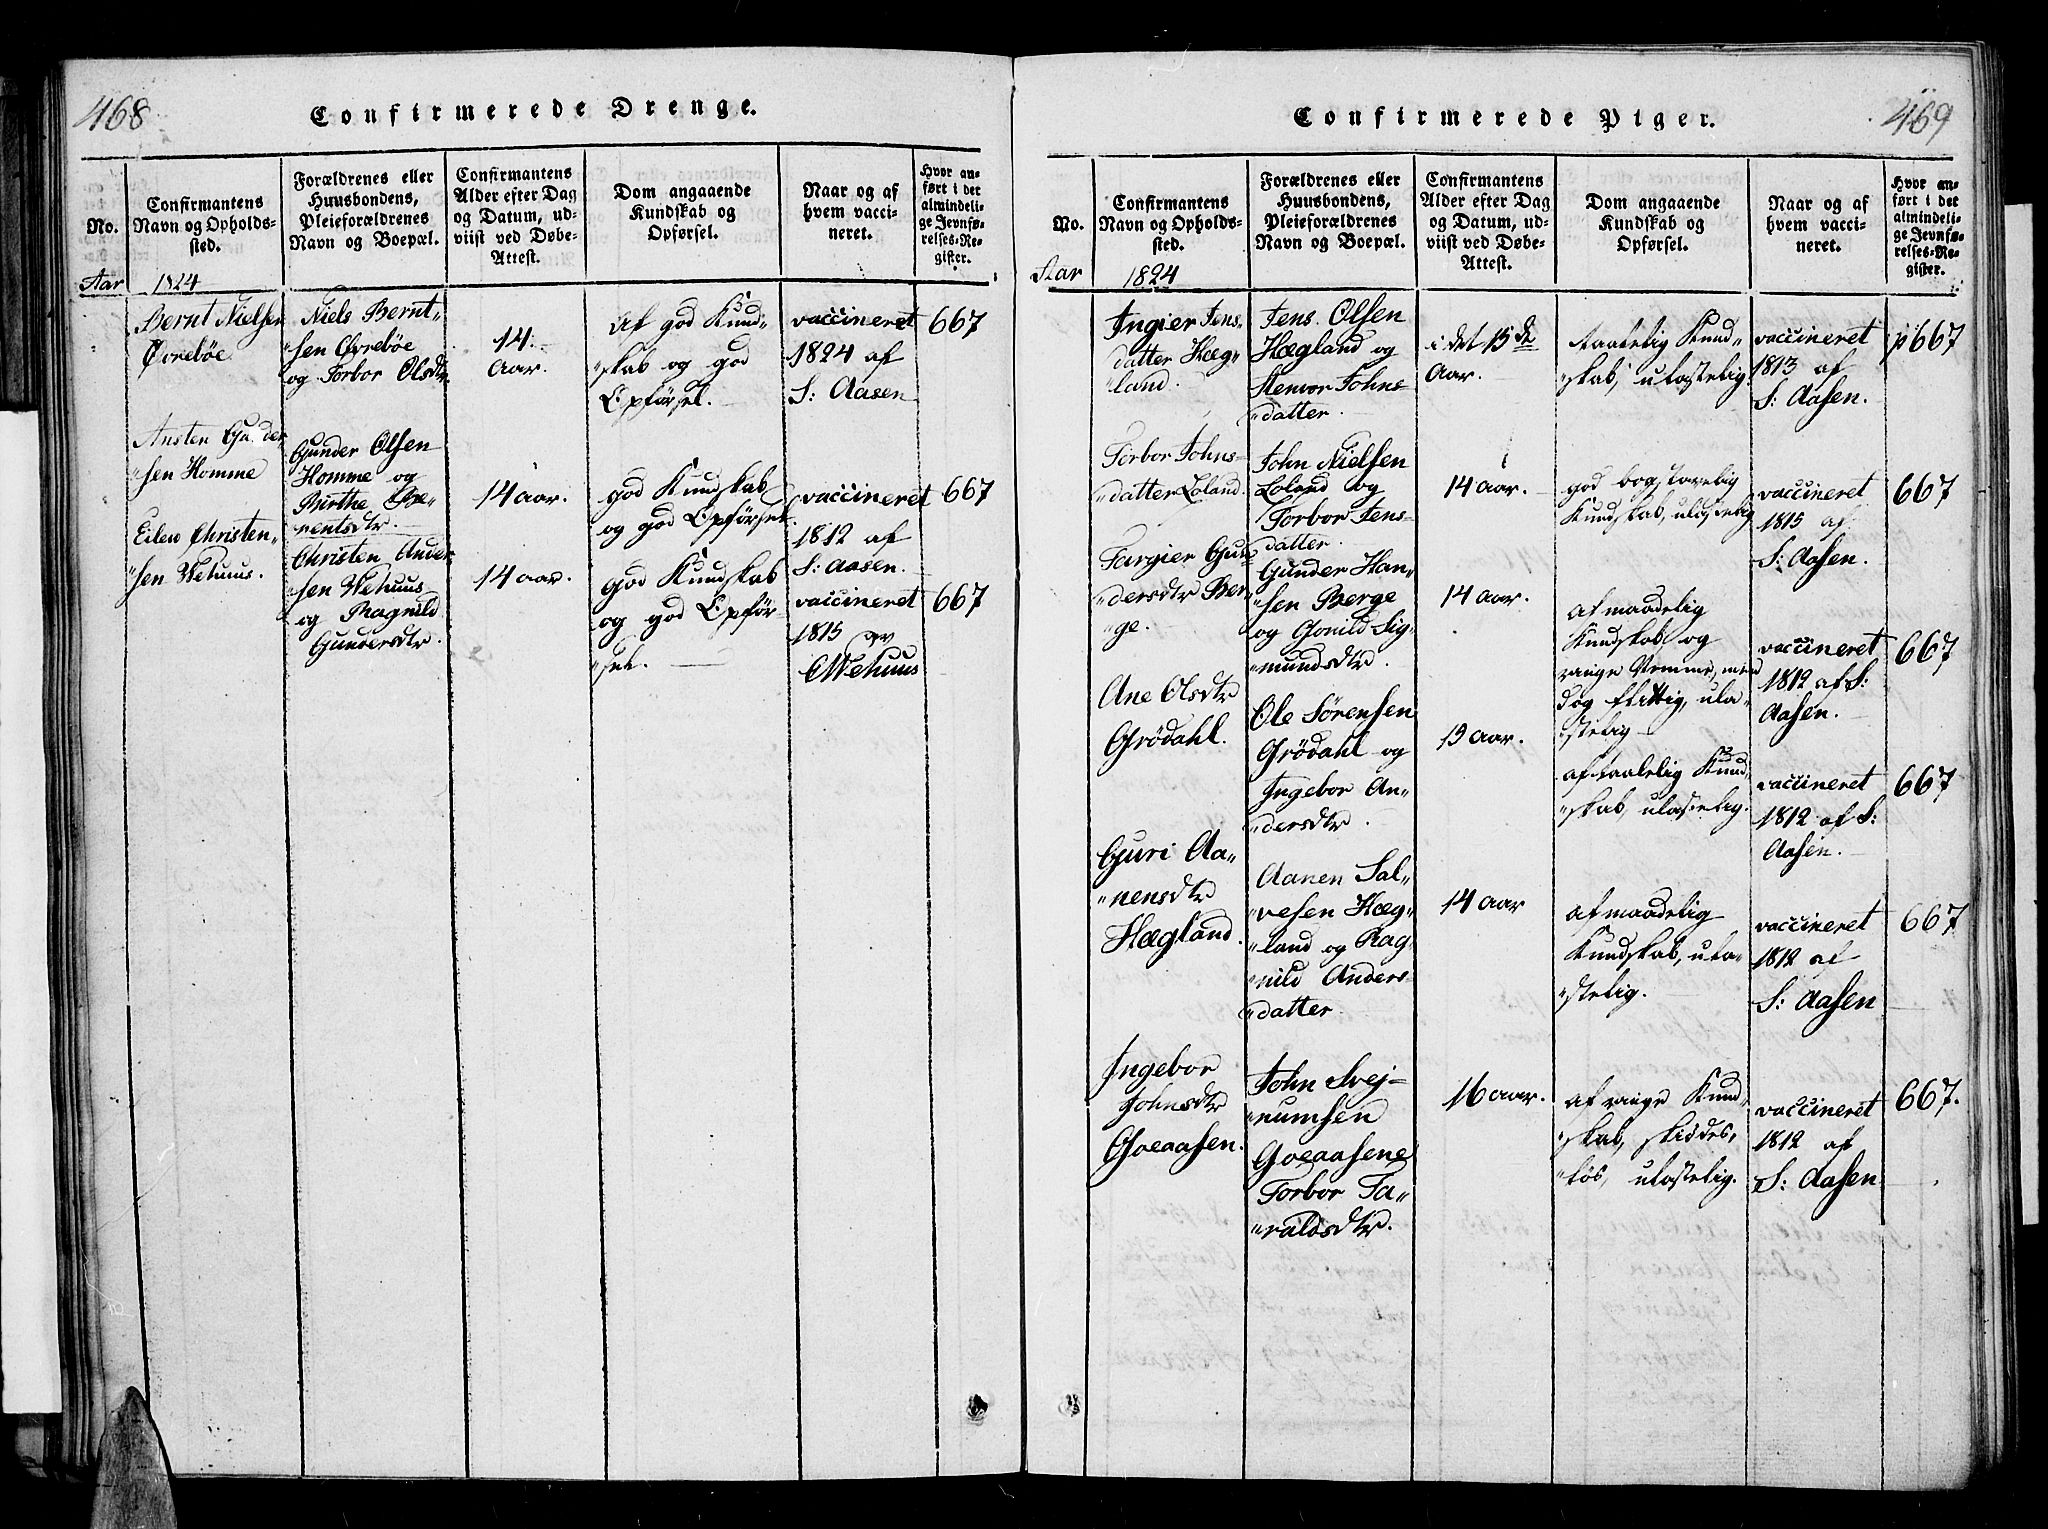 468
Confirmerede Drenge.
No.
Confirmantens
Navn og Opholds-
sted.
Forældrenes eller
Huusbondens,
Pleieforældrenes
Navn og Boepæl.
Confirmantens
Alder efter Dag
og Datum, ud-
viist ved Døbe-
Attest.
Dom angaaende
Kundskab og
Opførsel.
Naar og af
hvem vacci-
neret.
Hvor an-
ført i det
almindeli-
ge Jevnfø-
relses-Re-
gister.
Aar 1824
Bernt Nielsen
Øvrebøe
Niels Bernt-
"sen Øvrebøe
og Torbor Olsdtr
14
Aar.
Af god Kund-
"skab og god
Opførsel.
vaccineret
1824 af
S: Aasen
667
Ansten Gunder
"sen Homme
Gunder Olsen
Homme og
Birthe
"nentsdtr.
14 aar.
god Kundskab
og god Opførsel.
vaccineret
1812 af
S: Aasen.
667
Eilew Christen-
"sen Wehuus.
Christen Ander
"sen Wehuus
og Ragnild
Gundersdtr.
14 aar.
god Kundskab
og god Opfør-
"sel.
vaccineret
1815 av
Wehuus
667
469
Confirmerede Piger.
No.
Confirmantens
Navn og Opholds-
sted.
Forældrenes eller
Huusbondens,
Pleieforældrenes
Navn og Boepæl.
Confirmantens
Alder efter Dag
og Datum, ud-
viist ved Døbe-
Attest.
Dom angaaende
Kundskab og
Opførsel.
Naar og af
hvem vacci-
neret.
Hvor an-
ført i det
almindeli-
ge Jevnfø-
relses-Re-
gister.
Aar 1824
Ingier Jens-
datter Hæg-
"land.
Jens Olsen
Hægland og
Stenvor Johns-
"datter.
i det 15de
Aar.
taalelig Kund-
"skab, ulastelig.
vaccineret
1813 af
S: Aasen.
p 667
Torbor Johns-
"datter Loland.
John Nielsen
Loland og
Torbor Jens-
datter.
14 aar.
god bogstavelig
Kundskab, ulastelig
vaccineret
1815 af
S: Aasen.
667
Targier Gun-
"dersdtr Ber-
"ge.
Gunder Han-
"sen Berge
og Gonild Sig-
"mundsdtr.
14 aar.
af maadelig
Kundskab og
ringe Nemme, men
dog flittig, ula-
"stelig
vaccineret
1812 af S:
Aasen.
667
Ane Olsdtr
Grödahl.
Ole Sörensen
Grödahl og
Ingebor An-
"dersdtr.
19 aar.
af taalelig Kund-
"skab, ulastelig.
vaccineret
1812 af S:
Aasen.
667
Guri Aa-
"nensdtr
Hægland.
Aanen Sal-
"vesen Hæg-
"land og Rag-
"nild Anders-
"datter
14 aar
af maadelig
Kundskab, ula-
"stelig.
vaccineret
1812 af
S: Aasen
667
Ingebor
Johnsdtr
Goeaasen.
John Svej-
"numsen
Goeaasen
Torbor Ta-
"raldsdtr.
16 aar.
af ringe Kund-
"skab, skiödes-
"lös, ulastelig.
vaccineret
1812 af
S: Aasen
667.